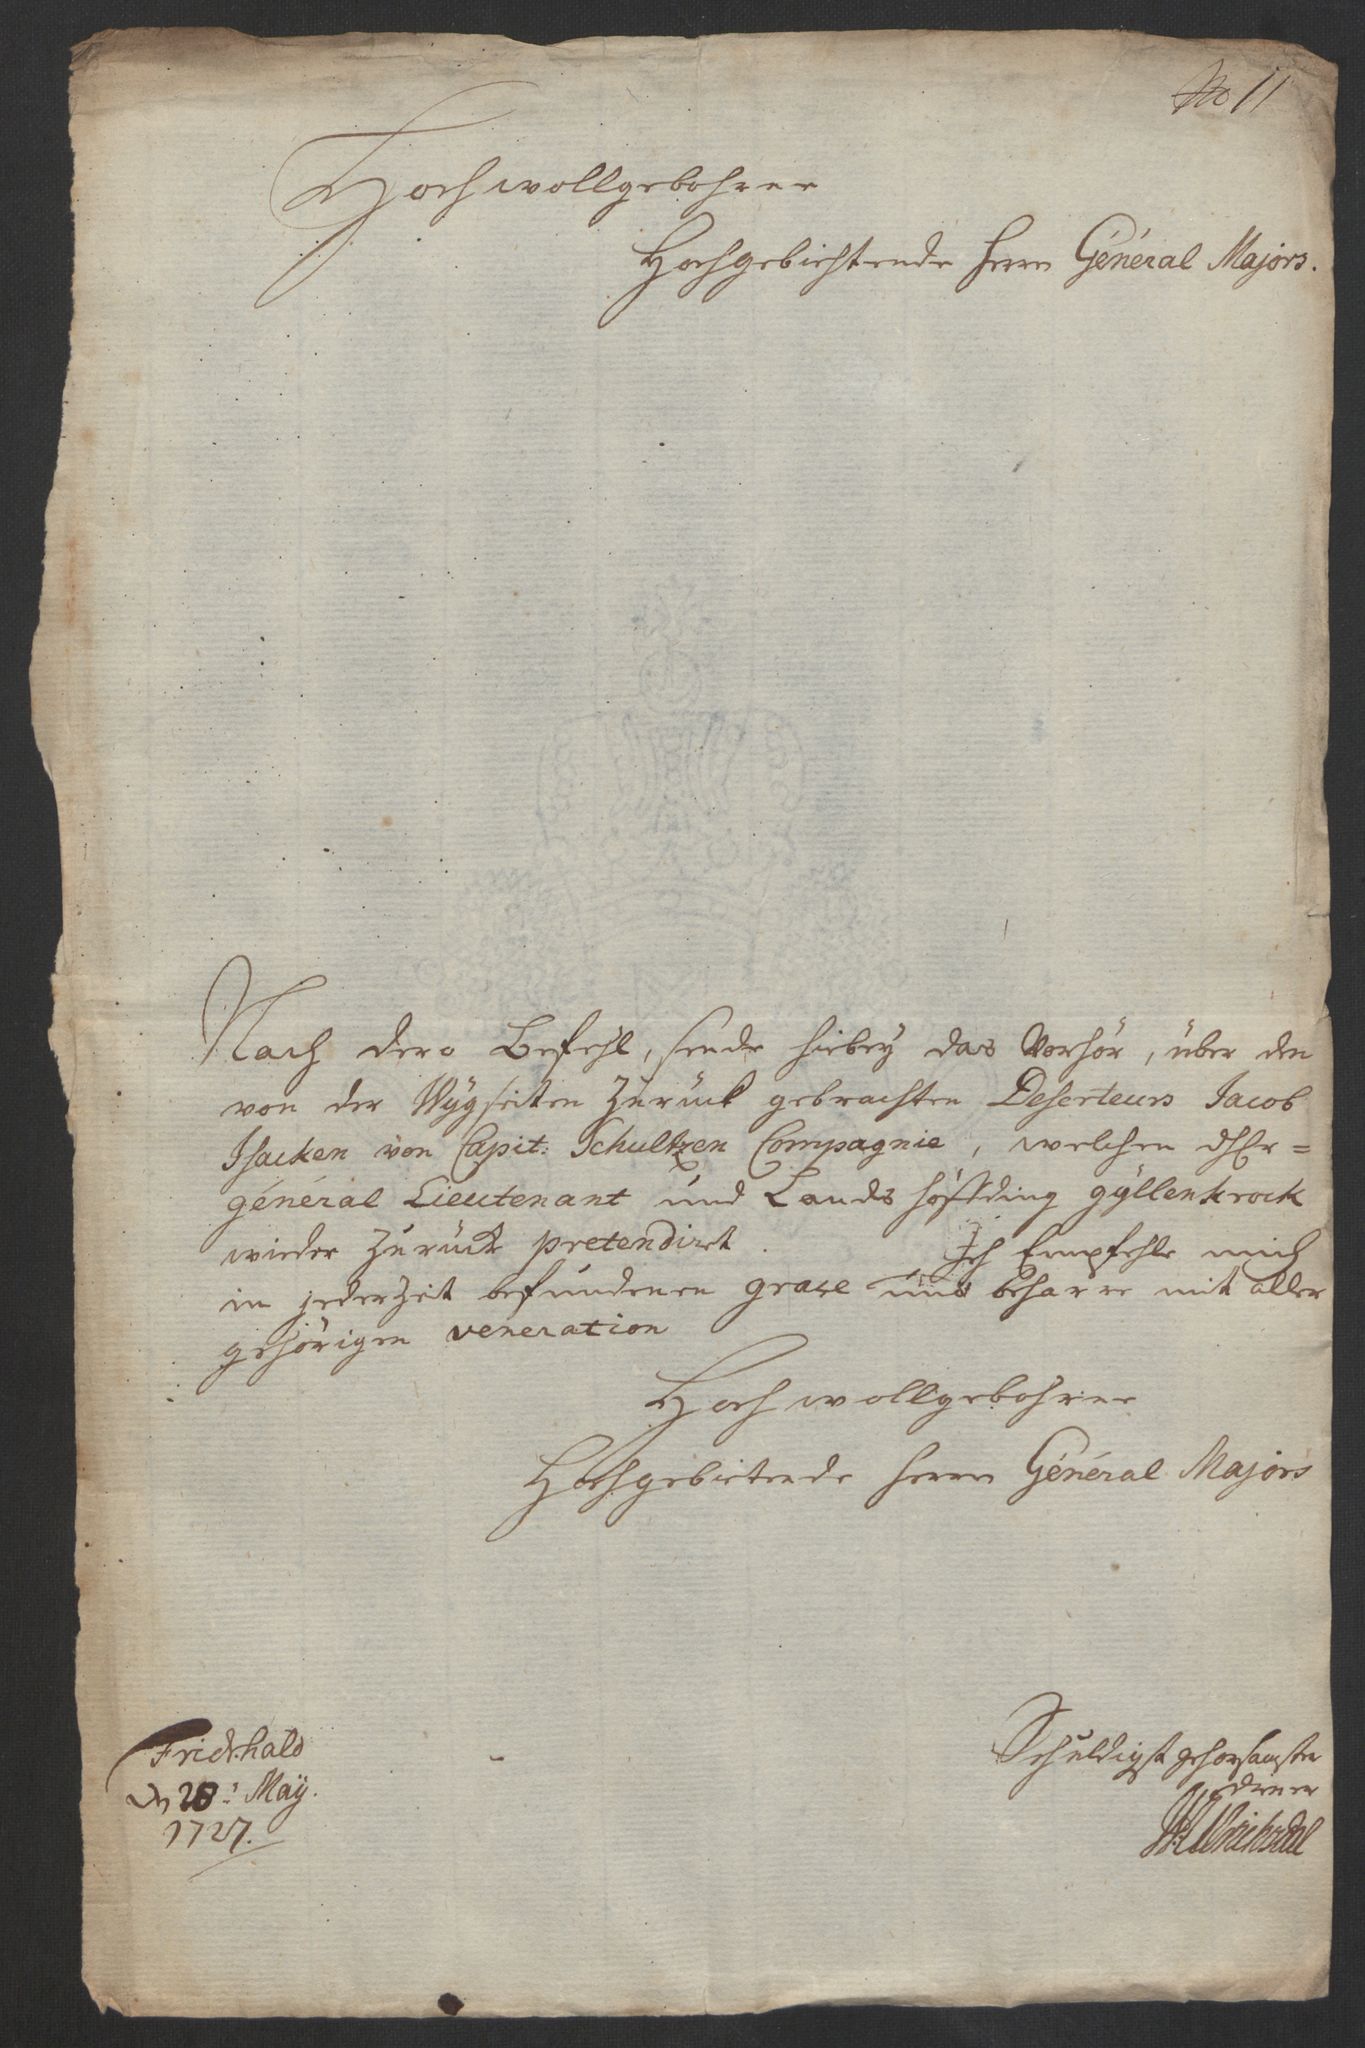 No 11
Hochwollgebohrne
Hochgebiehtende Herrn Général Majors.
Nach dero Befehl, sende hiebey das Vorhör, über den
von der Wÿgseiten Zurück gebrachten Deserteurs Jacob
Isacken von Capit: Schultzen Compagnie, welchen dHEr=
général Lieutenant und Lands höffding gÿllenkrock
wieder Zurück pretendiret. Ich Empfehle mich
in jederzeit befundenen grace und beharre mit aller
gehörigen veneration
Hochwollgebohrne
Hochgebietende Herrn Général Majors
Schuldigst gehorsamster
diener
Fridr.hald
den 28: Maÿ.
1727.